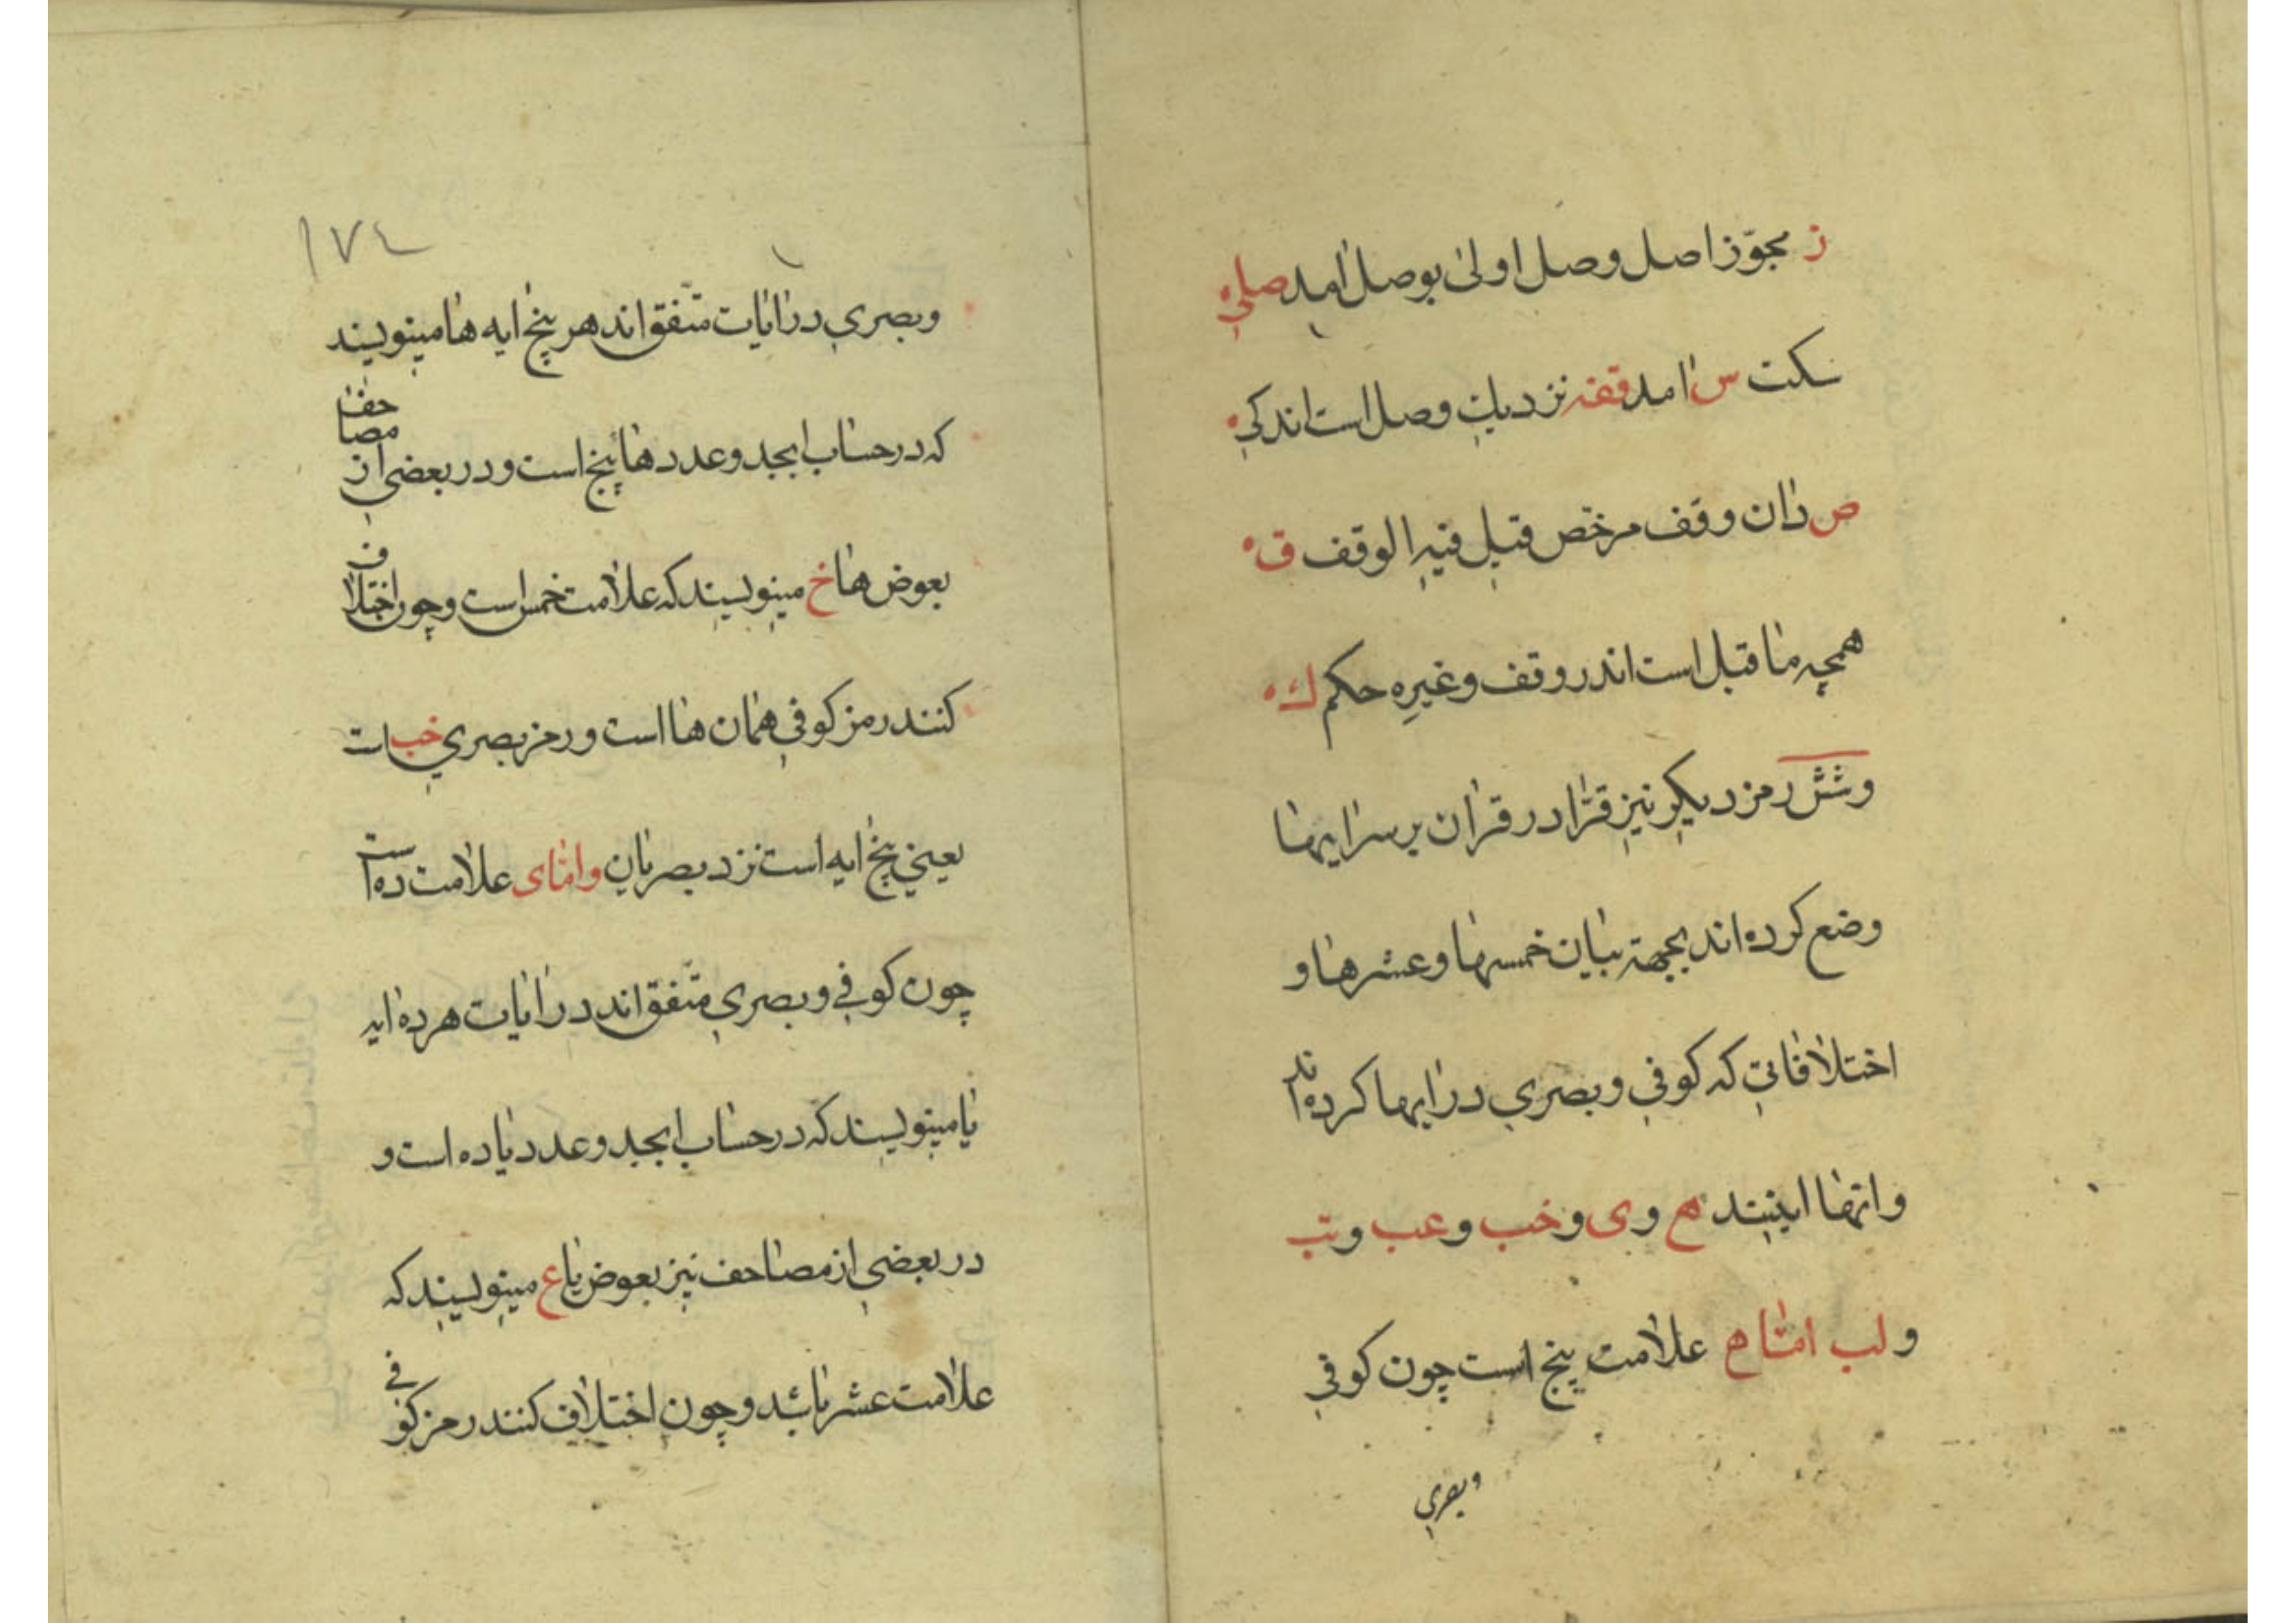 ز مجوّز اصل وصل اولیٰ بوصل امد صلی
سکت س امد قفه نزدیک وصل است اندکی
ص دان وقف مرخّص قیل فیه الوقف ق
همچه ما قبل است اندر وقف وغیره حکم ك
وشش رمز دیگر نیز قرّا در قران بر سرایها
وضع کرده‌اند بجهة بیان خمسها وعشرها و
اختلافاتی که کوفی وبصری در ایها کرده‌اند
وانها اینند ه وی وخب وعب وتب
ولب امّا ه علامت پنج است چون کوفی
وبصری
۱۷٤
وبصری در ایات متّفق اند هر پنج ایه ها مینویسند
که در حساب ابجد وعدد ها پنج است ودر بعضی از مصاحف
بعوض ها خ مینویسند که علامت خمس است وچون اختلاف
کنند رمز کوفی همان ها است ورمز بصری خب است
یعنی پنج ایه است نزد بصریان وامّا ی علامت ده است
چون کوفی وبصری متّفق اند در ایات هر ده ایه
یا مینویسند که در حساب ابجد وعدد یا ده است و
در بعضی از مصاحف نیز بعوض یا ع مینویسند که
علامت عشر باشد وچون اختلاف کنند رمز کوفی